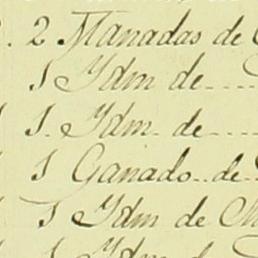 2 Manadas de
1 Ydm de
1. Ydm. de
1 Ganado de
1 Ydm de
1 Ydm de